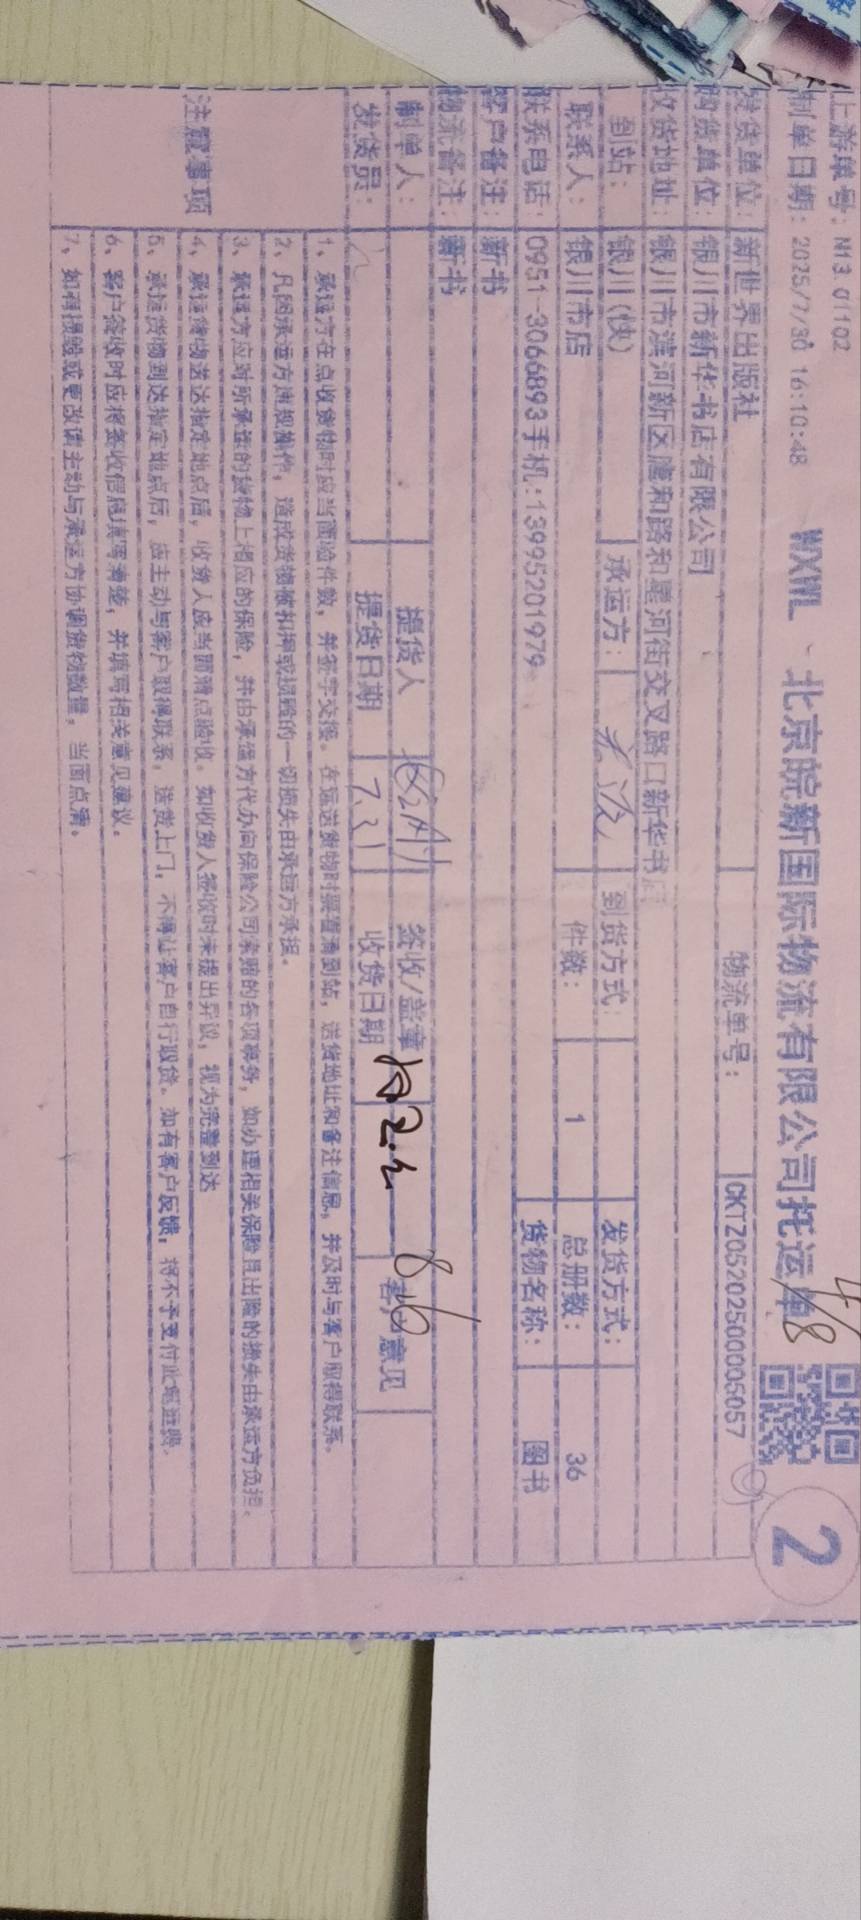 上游单号: N13.01102
制单日期: 2025/7/30 16:10:48 WXWL - 北京皖新国际物流有限公司托运单 2
发货单位: 新世界出版社 物流单号: CKTZ05202500005057
购货单位: 银川市新华书店有限公司
收货地址: 银川市滿河新区唐和路和星河街交叉路口新华书店
到站: 银川(快) 承运方: 到货方式: 发货方式:
联系人: 银川市店 件数: 1 总册数: 36
联系电话: 0951-3066893手机:13995201979 货物名称: 图书
客户备注: 新书
物流备注: 新书
制单人: 提货人 签收/盖章 8/6 客户意见
发货员: 提货日期 7.31 收货日期
注意事项
1、承运方在点收货物时应当面验件数,并签字交接。在运送货物时要看清到站,送货地址和备注信息,并及时与客户取得联系。
2、凡因承运方违规操作,造成货物被扣押或损毁的一切损失由承运方承担。
3、承运方应对所承运的货物上相应的保险,并由承运方代办向保险公司索赔的各项事务,如办理相关保险且出险的损失由承运方负担。
4、承运货物送达指定地点后,收货人应当面清点验收。如收货人签收时未提出异议,视为完整到达
5、承运货物到达指定地点后,应主动与客户取得联系,送货上门,不得让客户自行取货。如有客户反馈,将不予支付此笔运费。
6、客户签收时应将签收信息填写清楚,并填写相关意见建议。
7、如有损毁或更改请主动与承运方协调货物数量,当面点清。